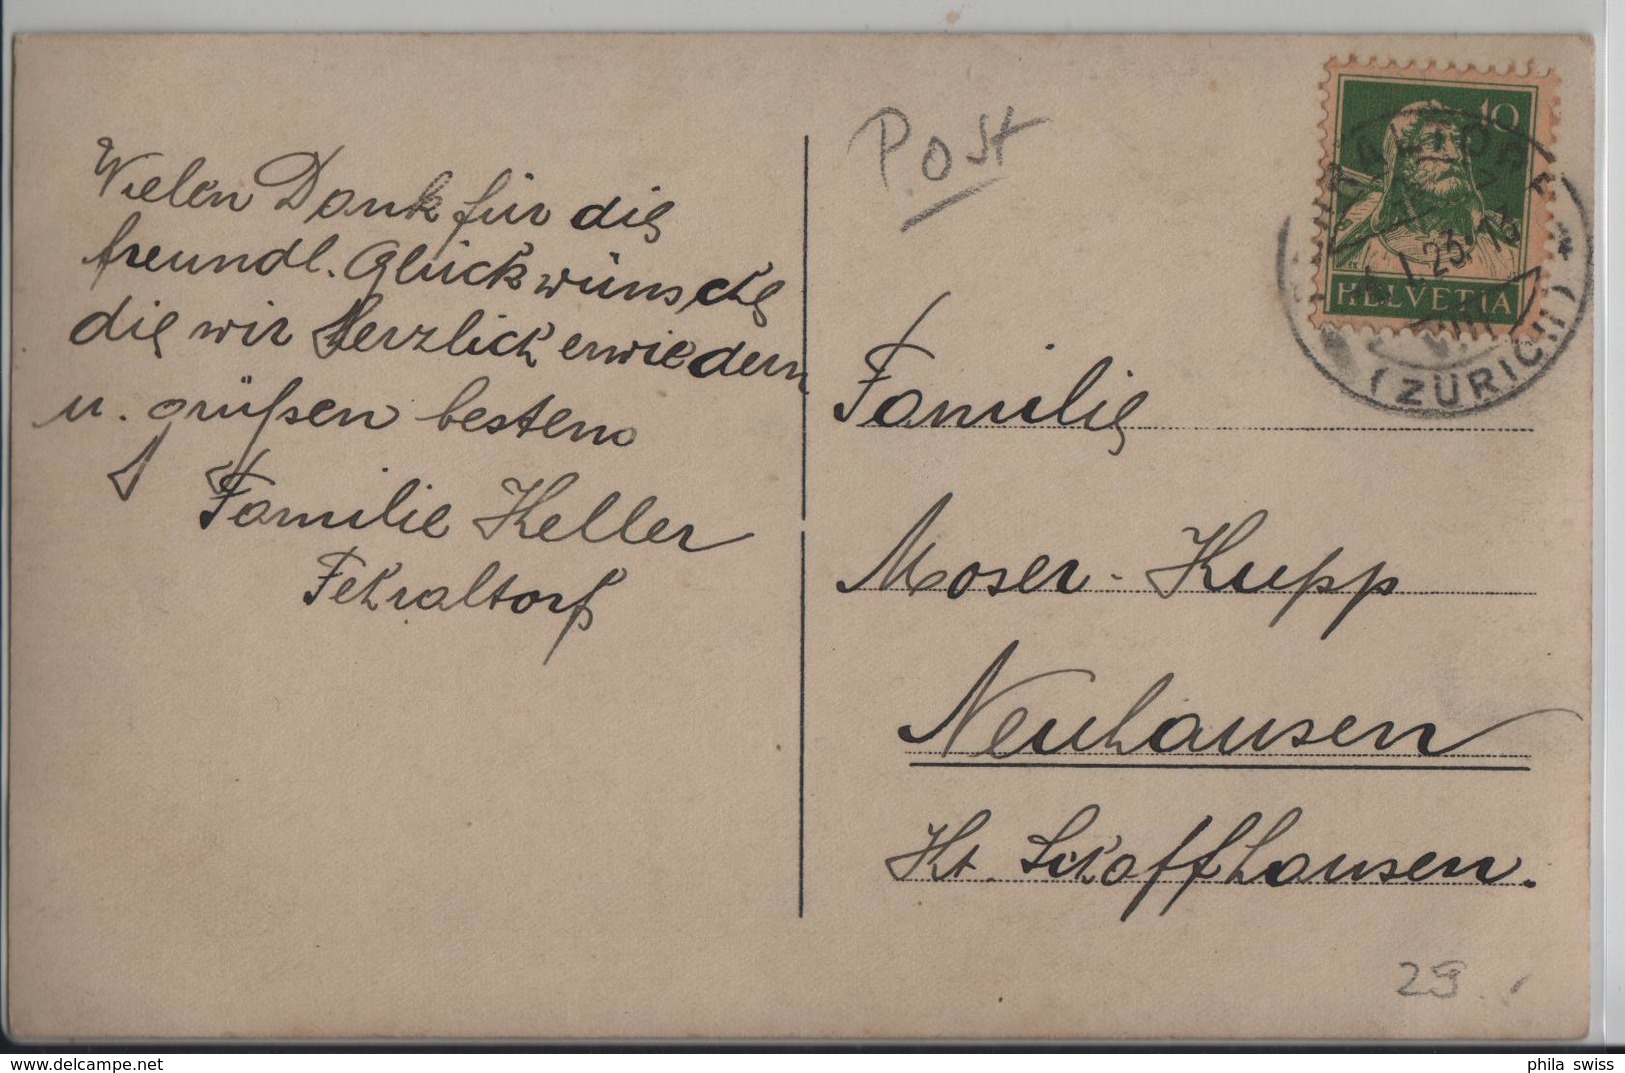 Vielen Dank für die
freundl. Glückwünsche
die wir herzlich erwiedern
u. grüßen bestens
Familie Keller
Fehraltorf
Post
10
HELVETIA
(ZÜRICH)
Familie
Moser-Hupp
Neuhausen
Kt. Schaffhausen.
29.
phila swiss